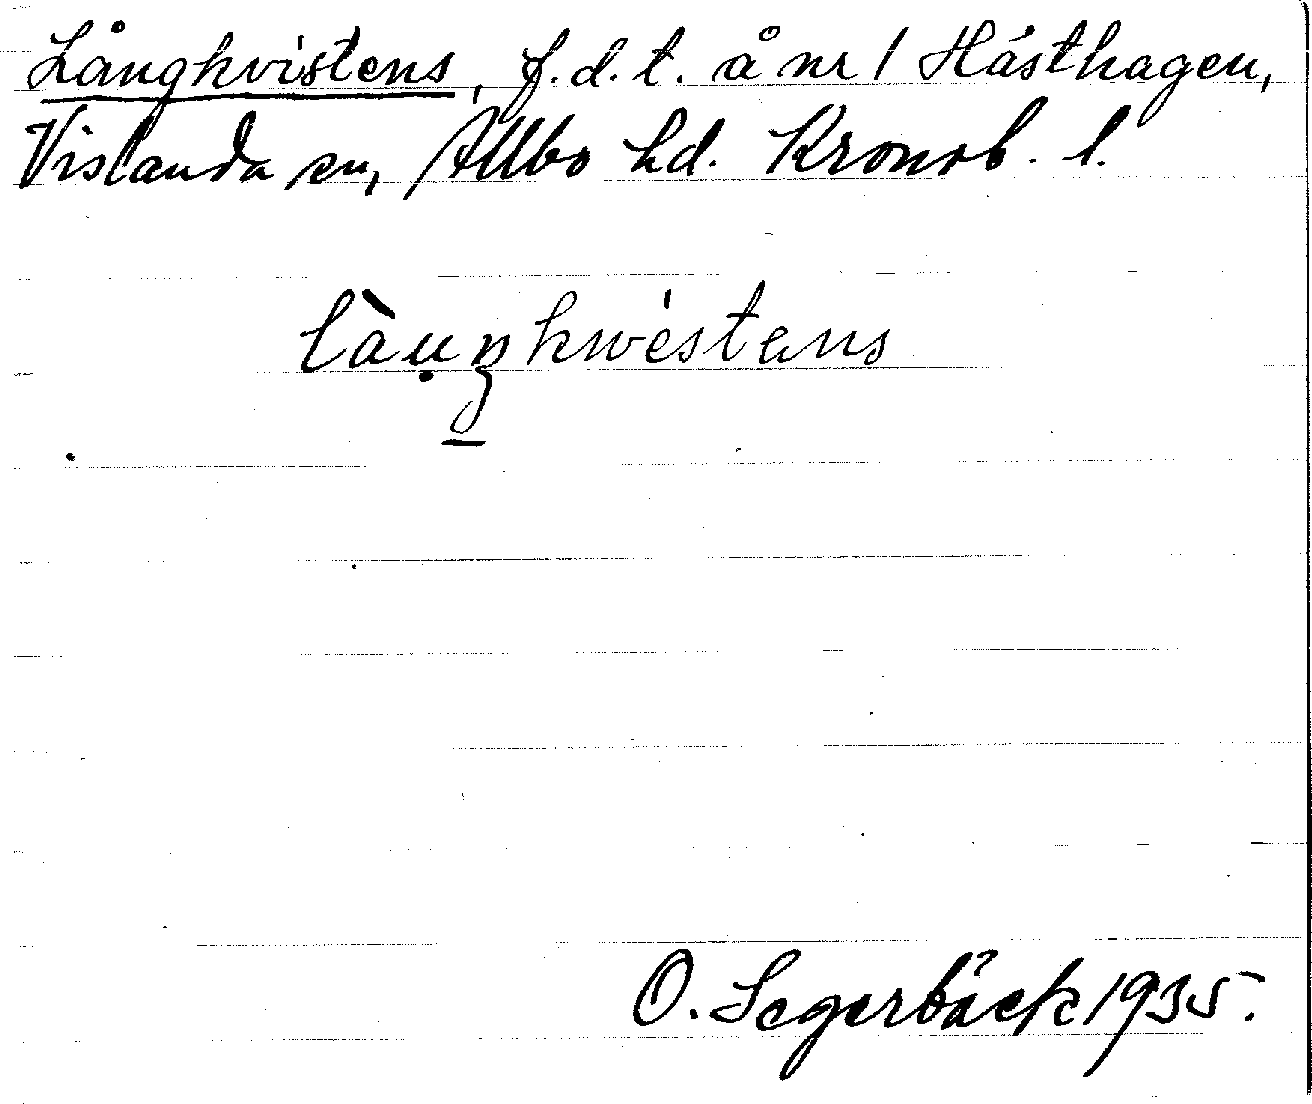 Långkvistens, f.d.t. å nr 1 Hästhagen,
Vislanda sn, Allbo hd. Kronob. l.
làụŋkwèstens
O. Segerbäck 1935.